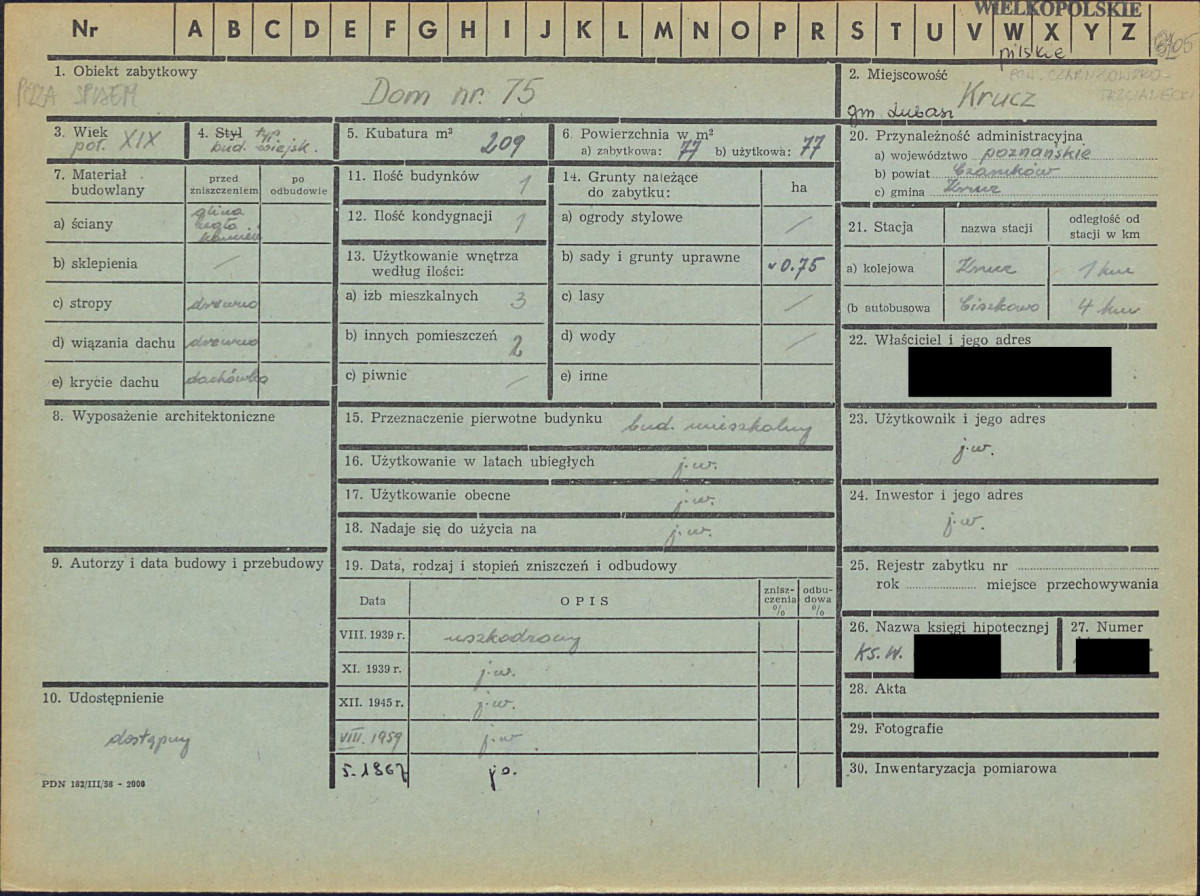 WIELKOPOLSKIE
Nr A B C D E F G H I J K L M N O P R S T U V W X Y Z
pilskie
1. Obiekt zabytkowy
POZA SPISEM
Dom nr. 75
2. Miejscowość
POW. CZARNKOWSKO-
TRZCIANECKI
Krucz
gm Lubasz
3. Wiek
poł. XIX
4. Styl typ.
bud. wiejsk.
5. Kubatura m³
209
6. Powierzchnia w m²
a) zabytkowa: 77 b) użytkowa: 77
7. Materiał budowlany
przed zniszczeniem
po odbudowie
a) ściany
glina
cegła
kamień
b) sklepienia /
c) stropy drzewo
d) wiązania dachu drzewo
e) krycie dachu dachówka
8. Wyposażenie architektoniczne
9. Autorzy i data budowy i przebudowy
10. Udostępnienie
dostępny
PDN 182/III/58 - 2000
11. Ilość budynków 1
12. Ilość kondygnacji 1
13. Użytkowanie wnętrza
według ilości:
a) izb mieszkalnych 3
b) innych pomieszczeń 2
c) piwnic /
14. Grunty należące
do zabytku:
ha
a) ogrody stylowe /
b) sady i grunty uprawne 0.75
c) lasy /
d) wody /
e) inne
15. Przeznaczenie pierwotne budynku bud. mieszkalny
16. Użytkowanie w latach ubiegłych j.w.
17. Użytkowanie obecne j.w.
18. Nadaje się do użycia na j.w.
19. Data, rodzaj i stopień zniszczeń i odbudowy
Data OPIS znisz-czenia % odbu-dowa %
VIII. 1939 r. uszkodzony
XI. 1939 r. j.w.
XII. 1945 r. j.w.
VIII. 1959 j.w
5. 1967 j.w.
20. Przynależność administracyjna
a) województwo poznańskie
b) powiat Czarnków
c) gmina Krucz
21. Stacja
nazwa stacji
odległość od
stacji w km
a) kolejowa Krucz 1 km
(b autobusowa Ciszkowo 4 km
22. Właściciel i jego adres
23. Użytkownik i jego adres
j.w.
24. Inwestor i jego adres
j.w.
25. Rejestr zabytku nr
rok miejsce przechowywania
26. Nazwa księgi hipotecznej
KS. W.
27. Numer
28. Akta
29. Fotografie
30. Inwentaryzacja pomiarowa